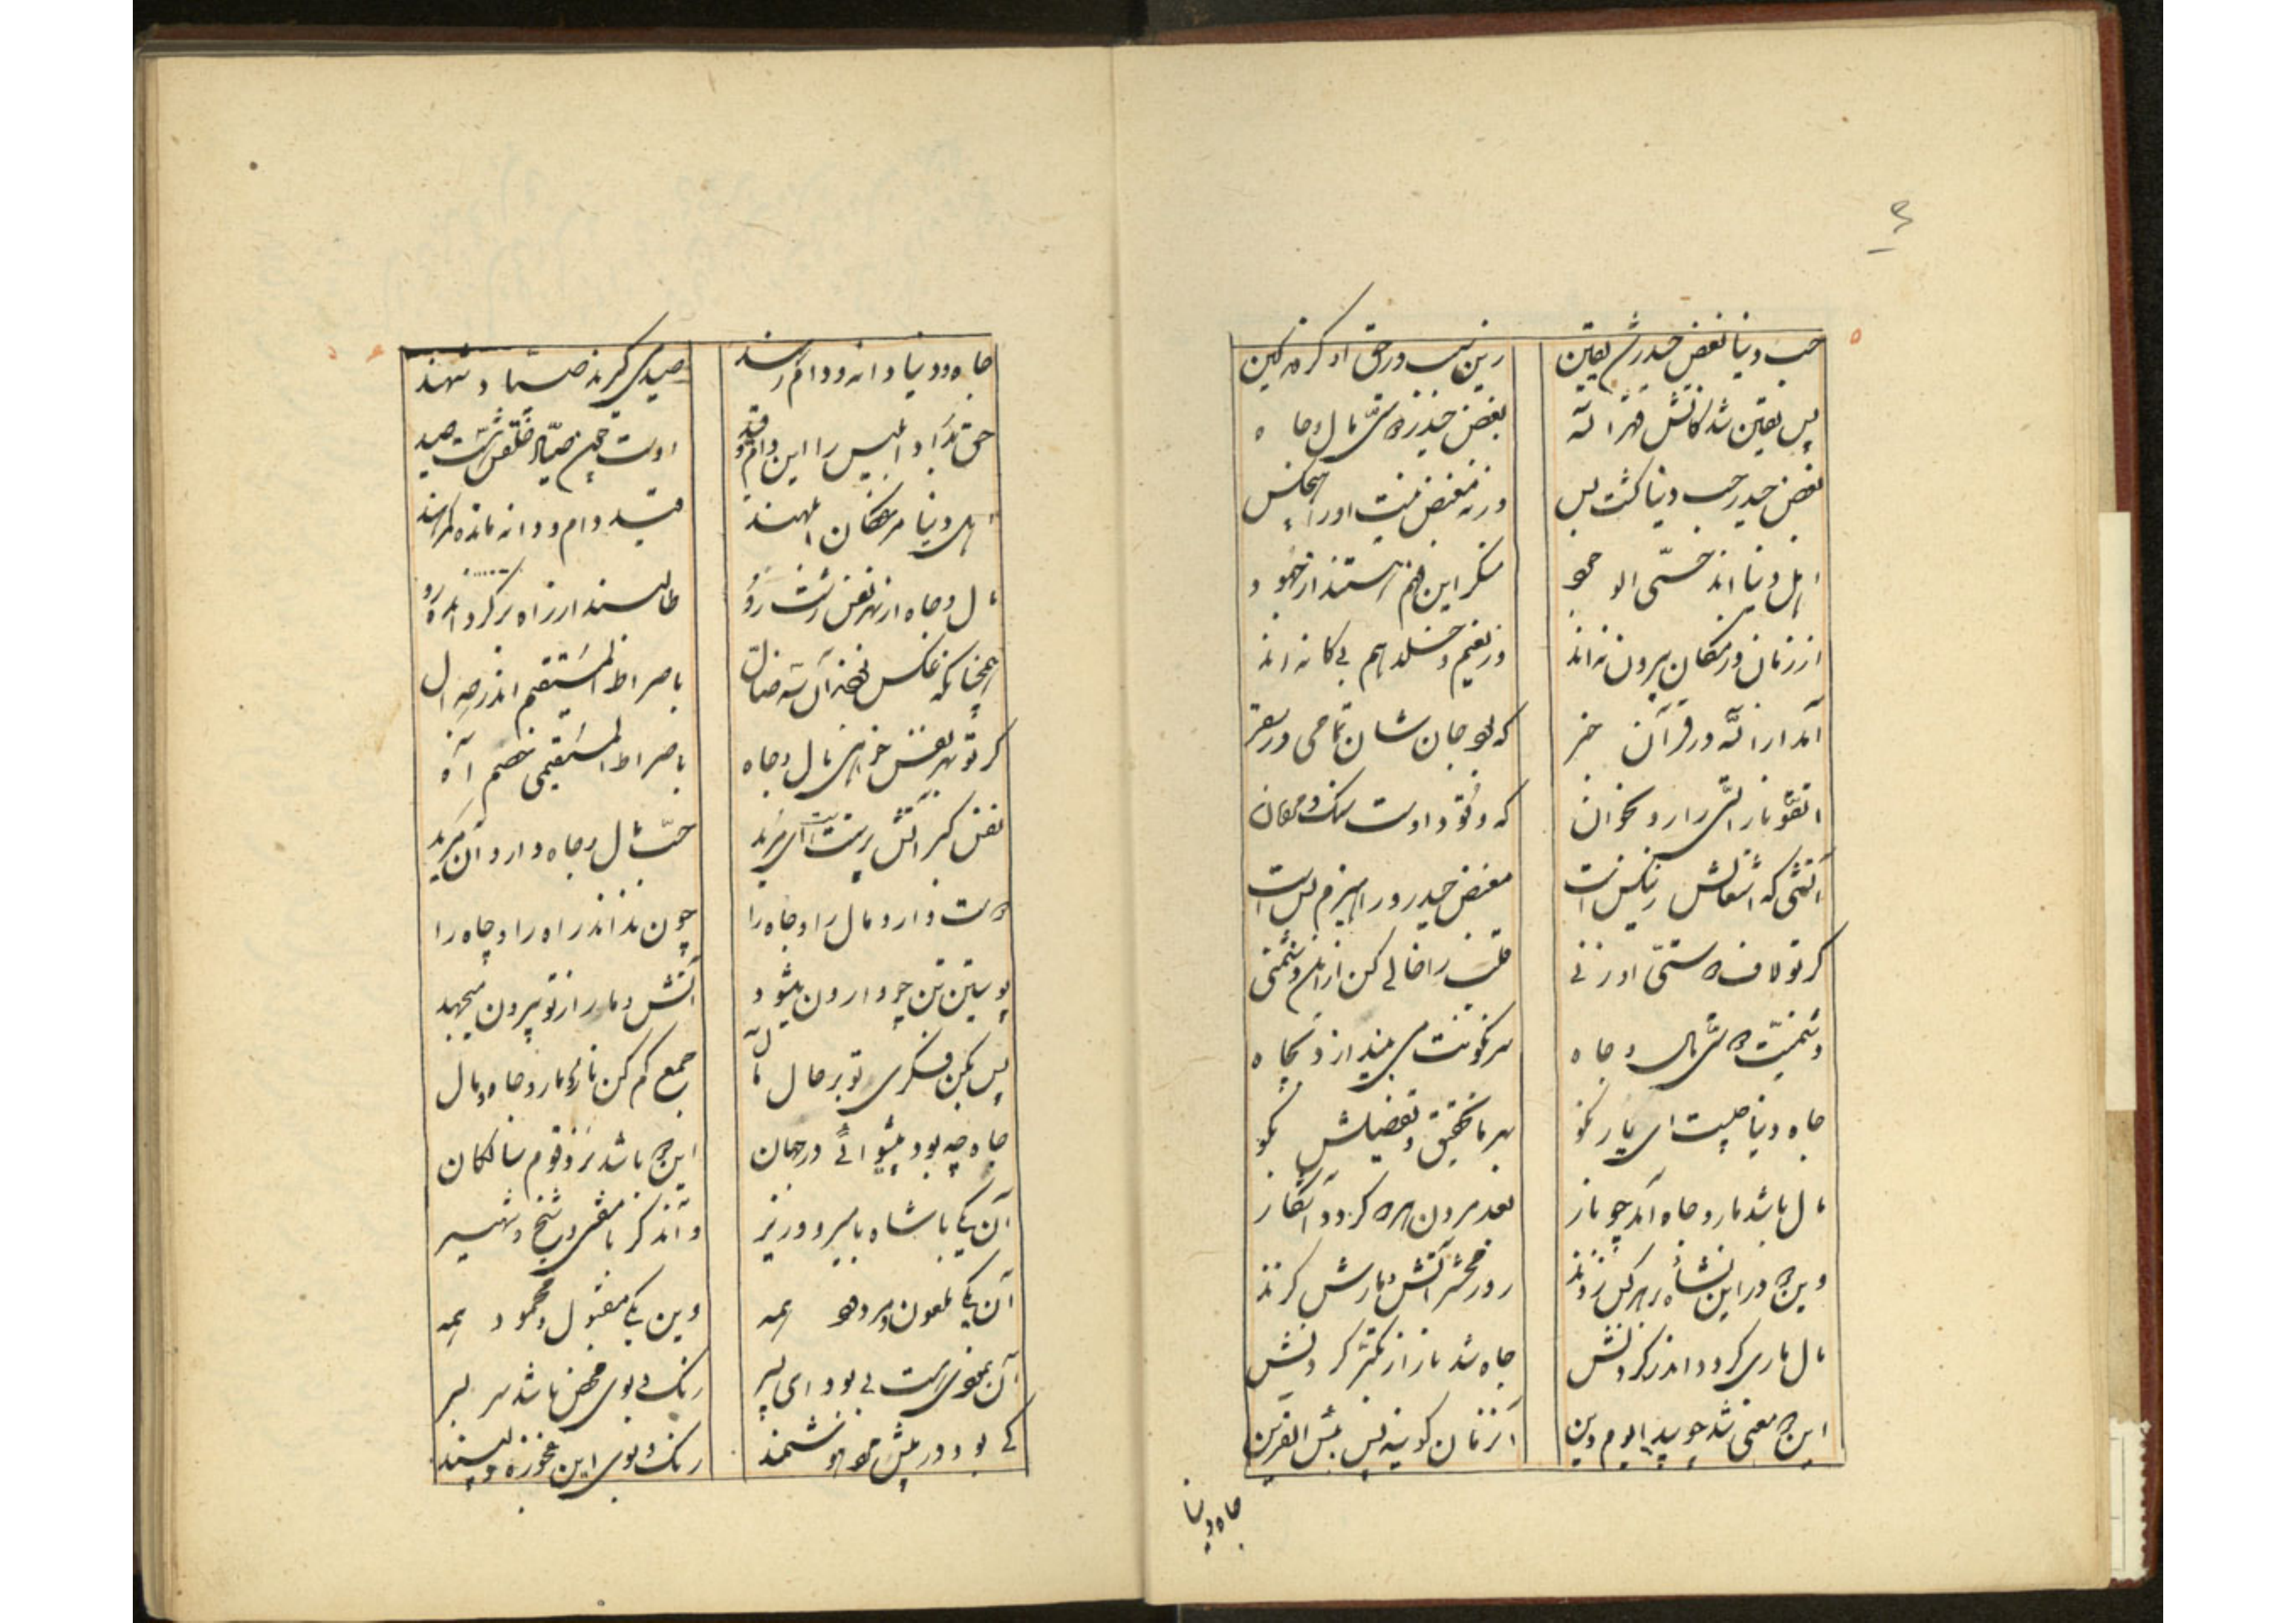 حب دنیا بغض حیدر شد یقین
زین سبب در حق او کرده کمین
پس یقین شد کاتش قهر اله
بغض حیدر دوستی مال و جاه
بغض حیدر حب دنیا گشت بس
ورنه مبغض نیست او را هیچکس
اهل دنیا اند خستی
منکر این هم هستند از جهود
از زمان و از مکان بیرون نه اند
در نعیم و خلد هم بیکانه اند
آمد از الله در قرآن خبر
که بود جان شان تمامی در سقر
اتقوا نار التی را رو بخوان
که وقود اوست سنک و
آتشی که اشتعالش زین خس است
مبغض حیدر ورا هیزم بس است
کر تو لاف دوستی او زنی
قلب را خالی کن از اهل دشمنی
دشمنیت دوستی مال و جاه
سرنکونت می بیندازد بچاه
جاه دنیا چیست ای یار نکو
بهر ما تحقیق و تفضیلش بکو
مال باشد مار و جاه آمد چو نار
بعد مردن هر دو کردد آشکار
وین دو در این نشأه رهرکس زدند
روز محشر آتش و مارش کزند
مال ماری کردد اندر کردنش
جاه شد نار از تکبر کردنش
این دو معنی شد چو پیدا یوم دین
آنزمان کوید پس بئس القرین
جاه دنیا
جاه و دنیا دانه و دام رهند
صیدمی کیرند صیاد شهند
حق بداد ابلیس را این دام و قید
اوست چون صیاد و خلقش هست صید
اهل دنیا مرغکان ابلهند
قید دام و دانه مانده کمرهند
مال و جاه از بهر نفس زشت رو
طالبند از راه برکردانده رو
همچنانکه عکس نهند آن شه ضلال
با صراط المستقیم اندر جدال
کر تو بهر نفس خواهی مال و جاه
با صراط المستقیمی خصم آه
نفس کبر آتش پرست است ای مرید
حب مال و جاه دارد آن مرید
دوست دارد مال را و جاه را
چون نداند راه را و چاه را
پوستین تن چو وارون میشود
آتش و مار از تو بیرون میجهد
پس بکن فکری تو بر حال مآل
جمع کم کن نار و مار و جاه و مال
جاه چه بود پیشوائی در جهان
این دو باشد نزد قوم سالکان
آن یکی با شاه یا میر و وزیر
واند کر با مفتی و شیخ و شهیر
آن یکی ملعون و مردود همه
وین یکی مقبول و محمود همه
آن بمغزی هست بی بود ای پسر
رنک و بوی محض باشد سر بسر
کی بود در پیش مرد هوشمند
رنک و بوی این عجوزه دلپسند